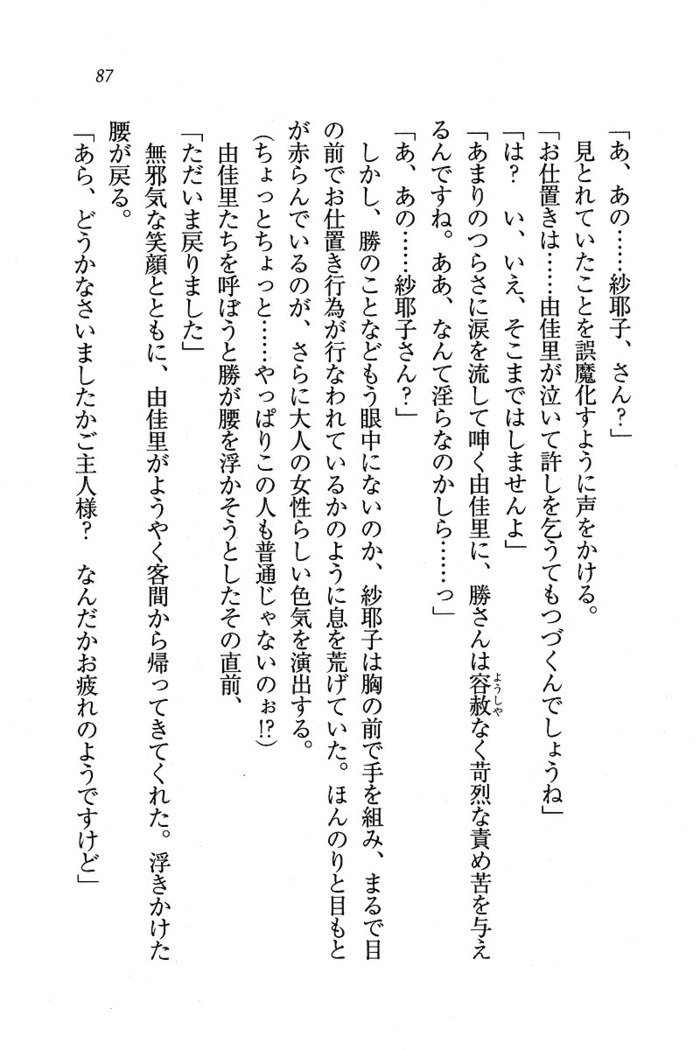 87
「あ、あの……紗耶子、さん？」
見とれていたことを誤魔化すように声をかける。
「お仕置きは……由佳里が泣いて許しを乞うてもつづくんでしょうね」
「は？　い、いえ、そこまではしませんよ」
「あまりのつらさに涙を流して呻く由佳里に、勝さんは容赦なく苛烈な責め苦を与え
ようしゃ
るんですね。ああ、なんて淫らなのかしら……っ」
「あ、あの……紗耶子さん？」
しかし、勝のことなどもう眼中にないのか、紗耶子は胸の前で手を組み、まるで目
の前でお仕置き行為が行なわれているかのように息を荒げていた。ほんのりと目もと
が赤らんでいるのが、さらに大人の女性らしい色気を演出する。
（ちょっとちょっと……やっぱりこの人も普通じゃないのぉ!?）
由佳里たちを呼ぼうと勝が腰を浮かそうとしたその直前、
「ただいま戻りました」
無邪気な笑顔とともに、由佳里がようやく客間から帰ってきてくれた。浮きかけた
腰が戻る。
「あら、どうかなさいましたかご主人様？　なんだかお疲れのようですけど」